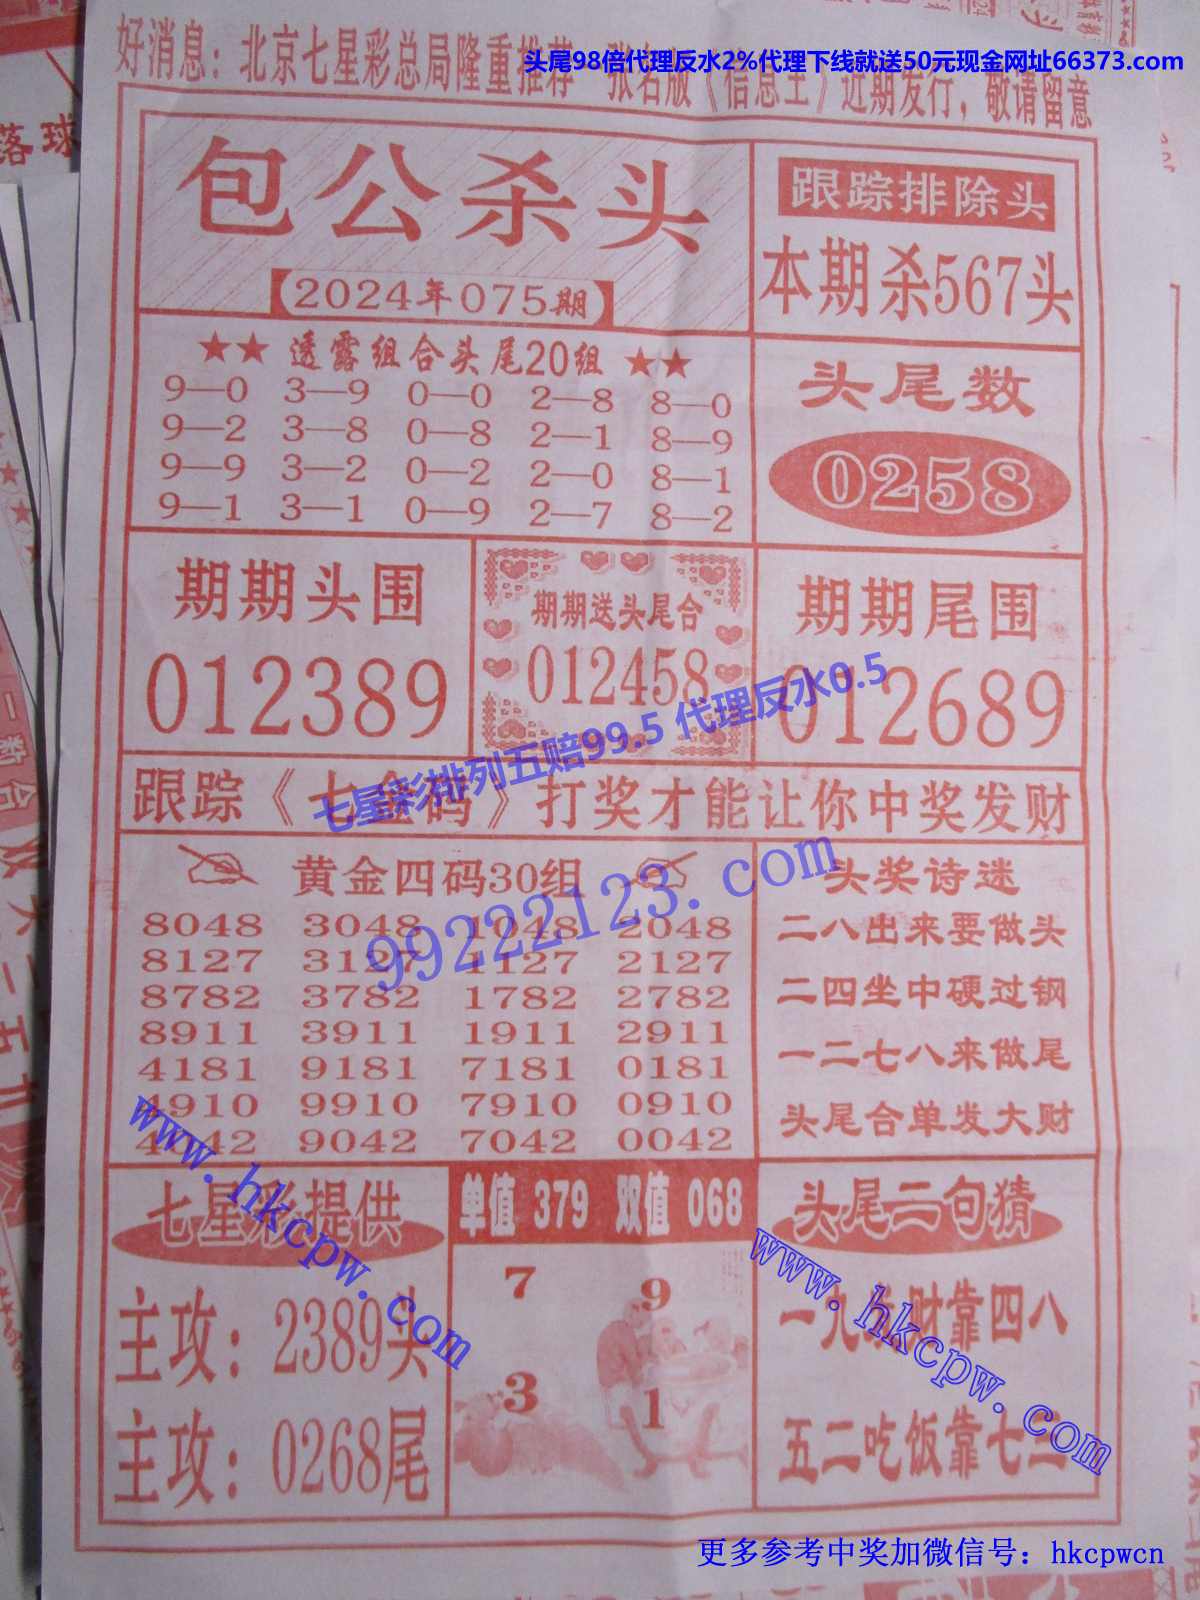 头尾98倍代理反水2%代理下线就送50元现金网址66373.com
好消息：北京七星彩总局隆重推荐 张名版《信息王》近期发行，敬请留意
落球
包公杀头
2024年075期
跟踪排除头
本期杀567头
★★ 透露组合头尾20组 ★★
9—0 3—9 0—0 2—8 8—0
9—2 3—8 0—8 2—1 8—9
9—9 3—2 0—2 2—0 8—1
9—1 3—1 0—9 2—7 8—2
头尾数
0258
期期头围
012389
期期送头尾合
012458
期期尾围
012689
七星彩排列五赔99.5 代理反水0.5
跟踪《七金码》打奖才能让你中奖发财
黄金四码30组
8048 3048 1048 2048
8127 3127 1127 2127
8782 3782 1782 2782
8911 3911 1911 2911
4181 9181 7181 0181
4910 9910 7910 0910
4042 9042 7042 0042
99222123.com
头奖诗迷
二八出来要做头
二四坐中硬过钢
一二七八来做尾
头尾合单发大财
七星彩提供
主攻：2389头
主攻：0268尾
www.hkcpw.com
单值 379 双值 068
7 9
3 1
头尾二句猜
一九发财靠四八
五二吃饭靠七三
www.hkcpw.com
更多参考中奖加微信号：hkcpwcn